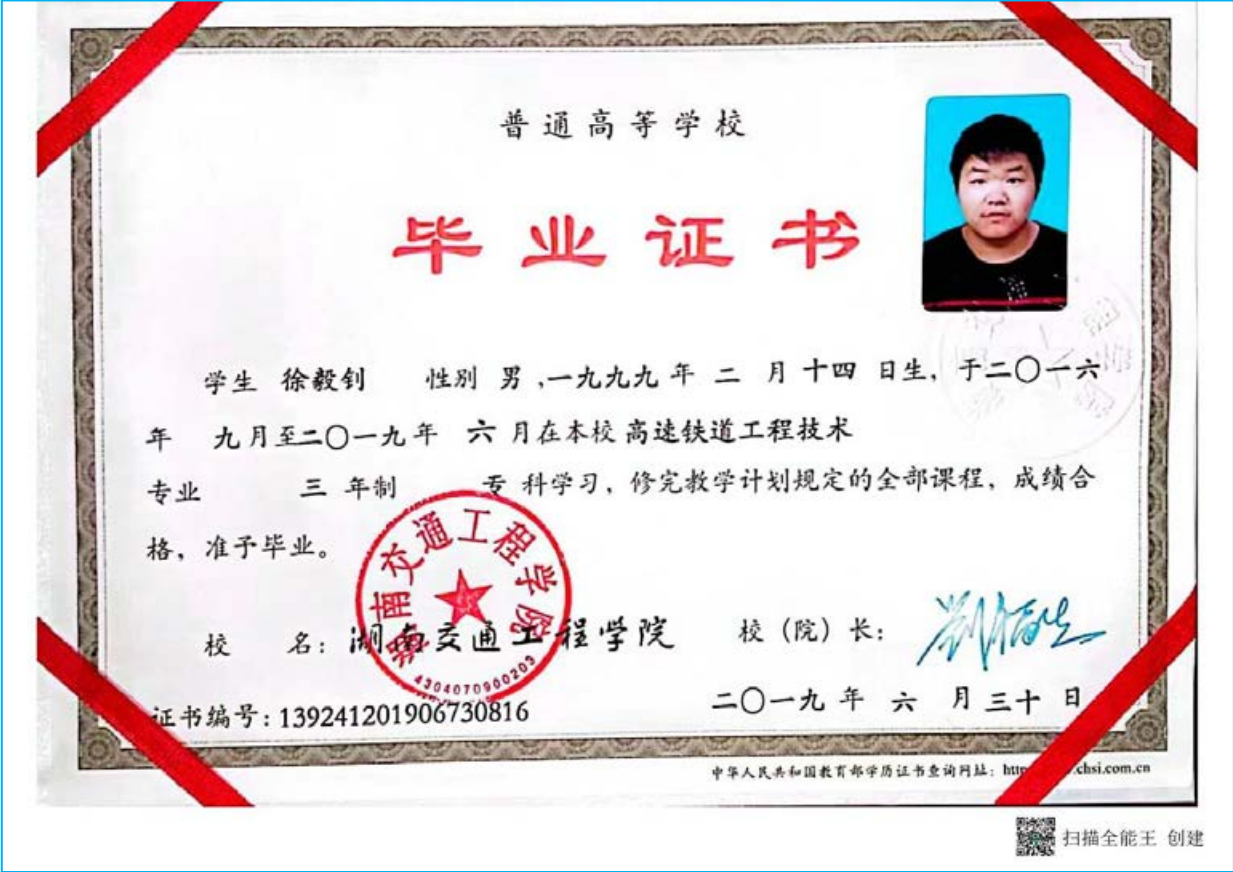 普通高等学校
毕业证书
学生 徐毅钊 性别 男 ,一九九九 年 二 月 十四 日生，于二〇一六
年 九月至二〇一九年 六 月在本校 高速铁道工程技术
专业 三 年制 专 科学习，修完教学计划规定的全部课程，成绩合
格，准予毕业。
湖南交通工程学院
4304070900203
校 名：湖南交通工程学院 校（院）长：
证书编号：139241201906730816 二〇一九 年 六 月 三十 日
中华人民共和国教育部学历证书查询网址：chsi.com.cn
扫描全能王 创建